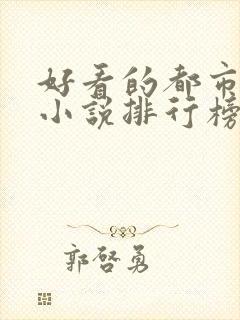 好看的都市
小说排行榜
郭啓勇